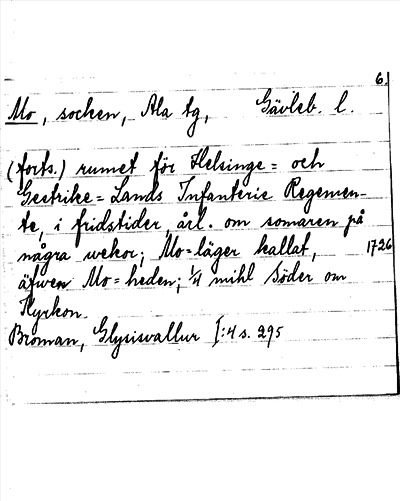 6.
Mo, socken, Ala tg, Gävleb. l.
(forts.) rumet för Helsinge= och
Gestrike=Lands Infanterie Regemen-
te, i fridstider årl. om somaren på
några wekor; Mo=läger kallat, 1726
äfwen Mo=heden; 1/4 mihl Söder om
Kyrkon.
Broman, Glysisvallur I:4 s. 295